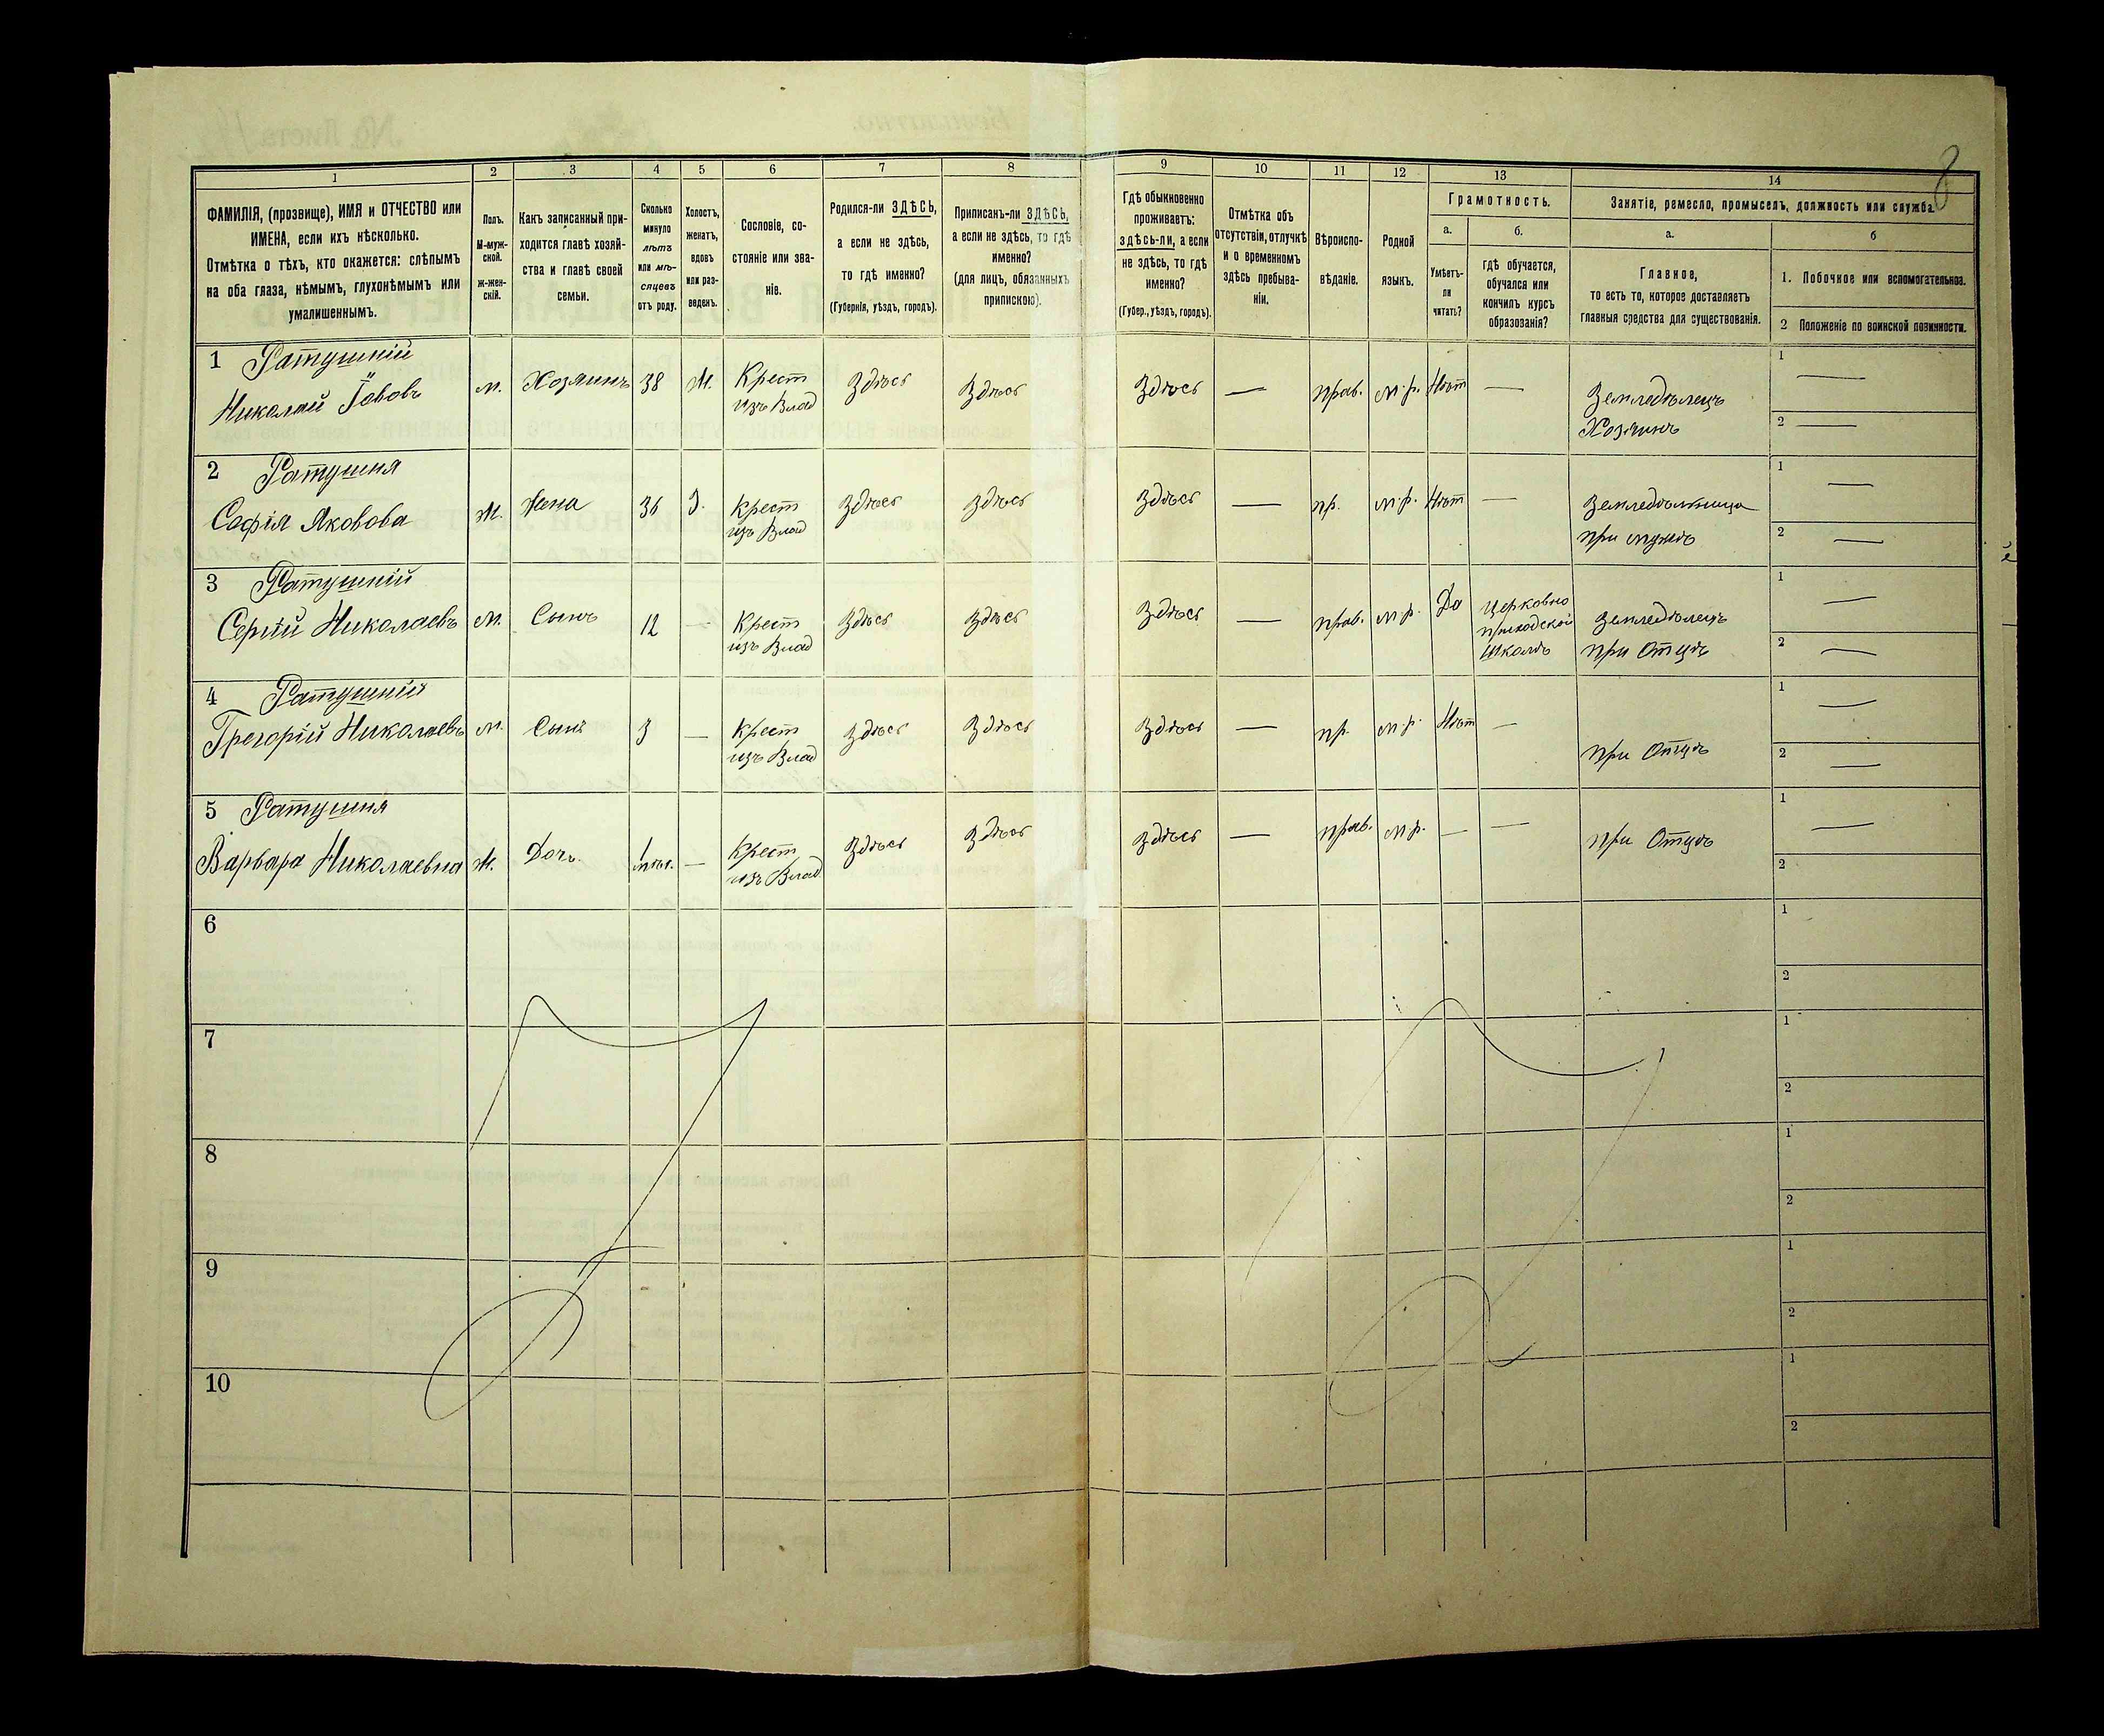 8
1 2 3 4 5 6 7 8 9 10 11 12 13 14
ФАМИЛІЯ, (прозвище), ИМЯ и ОТЧЕСТВО или
ИМЕНА, если ихъ нѣсколько.
Отмѣтка о тѣхъ, кто окажется: слѣпымъ
на оба глаза, нѣмымъ, глухонѣмымъ или
умалишеннымъ.
Полъ.
М-муж-
ской.
ж-жен-
скій.
Какъ записанный при-
ходится главѣ хозяй-
ства и главѣ своей
семьи.
Сколько
минуло
лѣтъ
или мѣ-
сяцевъ
отъ роду.
Холостъ,
женатъ,
вдовъ
или раз-
веденъ.
Сословіе, со-
стояніе или зва-
ніе.
Родился-ли ЗДѢСЬ,
а если не здѣсь,
то гдѣ именно?
(Губернія, уѣздъ, городъ).
Приписанъ-ли ЗДѢСЬ,
а если не здѣсь, то гдѣ
именно?
(для лицъ, обязанныхъ
припискою).
Гдѣ обыкновенно
проживаетъ:
здѣсь-ли, а если
не здѣсь, то гдѣ
именно?
(Губер., уѣздъ, городъ).
Отмѣтка объ
отсутствіи, отлучкѣ
и о временномъ
здѣсь пребыва-
ніи.
Вѣроиспо-
вѣданіе.
Родной
языкъ.
Грамотность.
а.
Умѣетъ-
ли
читать?
б.
гдѣ обучается,
обучался или
кончилъ курсъ
образованія?
Занятіе, ремесло, промыселъ, должность или служба.
а.
Главное,
то есть то, которое доставляетъ
главныя средства для существованія.
б
1. Побочное или вспомогательное.
2 Положеніе по воинской повинности.
1 Ратушній
Николай Іововъ
м. Хозяинъ 38 Ж. Крест
изъ Влад
Здѣсь Здѣсь Здѣсь — прав. м.р. Нѣт —
Земледѣлецъ
Хозяинъ
1 —
2 —
2 Ратушня
Софія Яковова
Ж. Жена 36 З. Крест
изъ Влад
Здѣсь Здѣсь Здѣсь — пр. м.р. Нѣт —
Земледѣльница
при мужѣ
1 —
2 —
3 Ратушній
Сергій Николаевъ
м. Сынъ 12 — Крест
изъ Влад
Здѣсь Здѣсь Здѣсь — прав. м.р. Да
Церковно
приходской
школѣ
Земледѣлецъ
при Отцѣ
1 —
2 —
4 Ратушній
Григорій Николаевъ
м. Сынъ 3 — Крест
изъ Влад
Здѣсь Здѣсь Здѣсь — пр. м.р. Нѣт —
при Отцѣ
1 —
2 —
5 Ратушня
Варвара Николаевна
Ж. Дочь 1
мѣс. — Крест
изъ Влад
Здѣсь Здѣсь Здѣсь — прав. м.р. — —
при Отцѣ
1 —
2
6
1
2
7
1
2
8
1
2
9
1
2
10
1
2